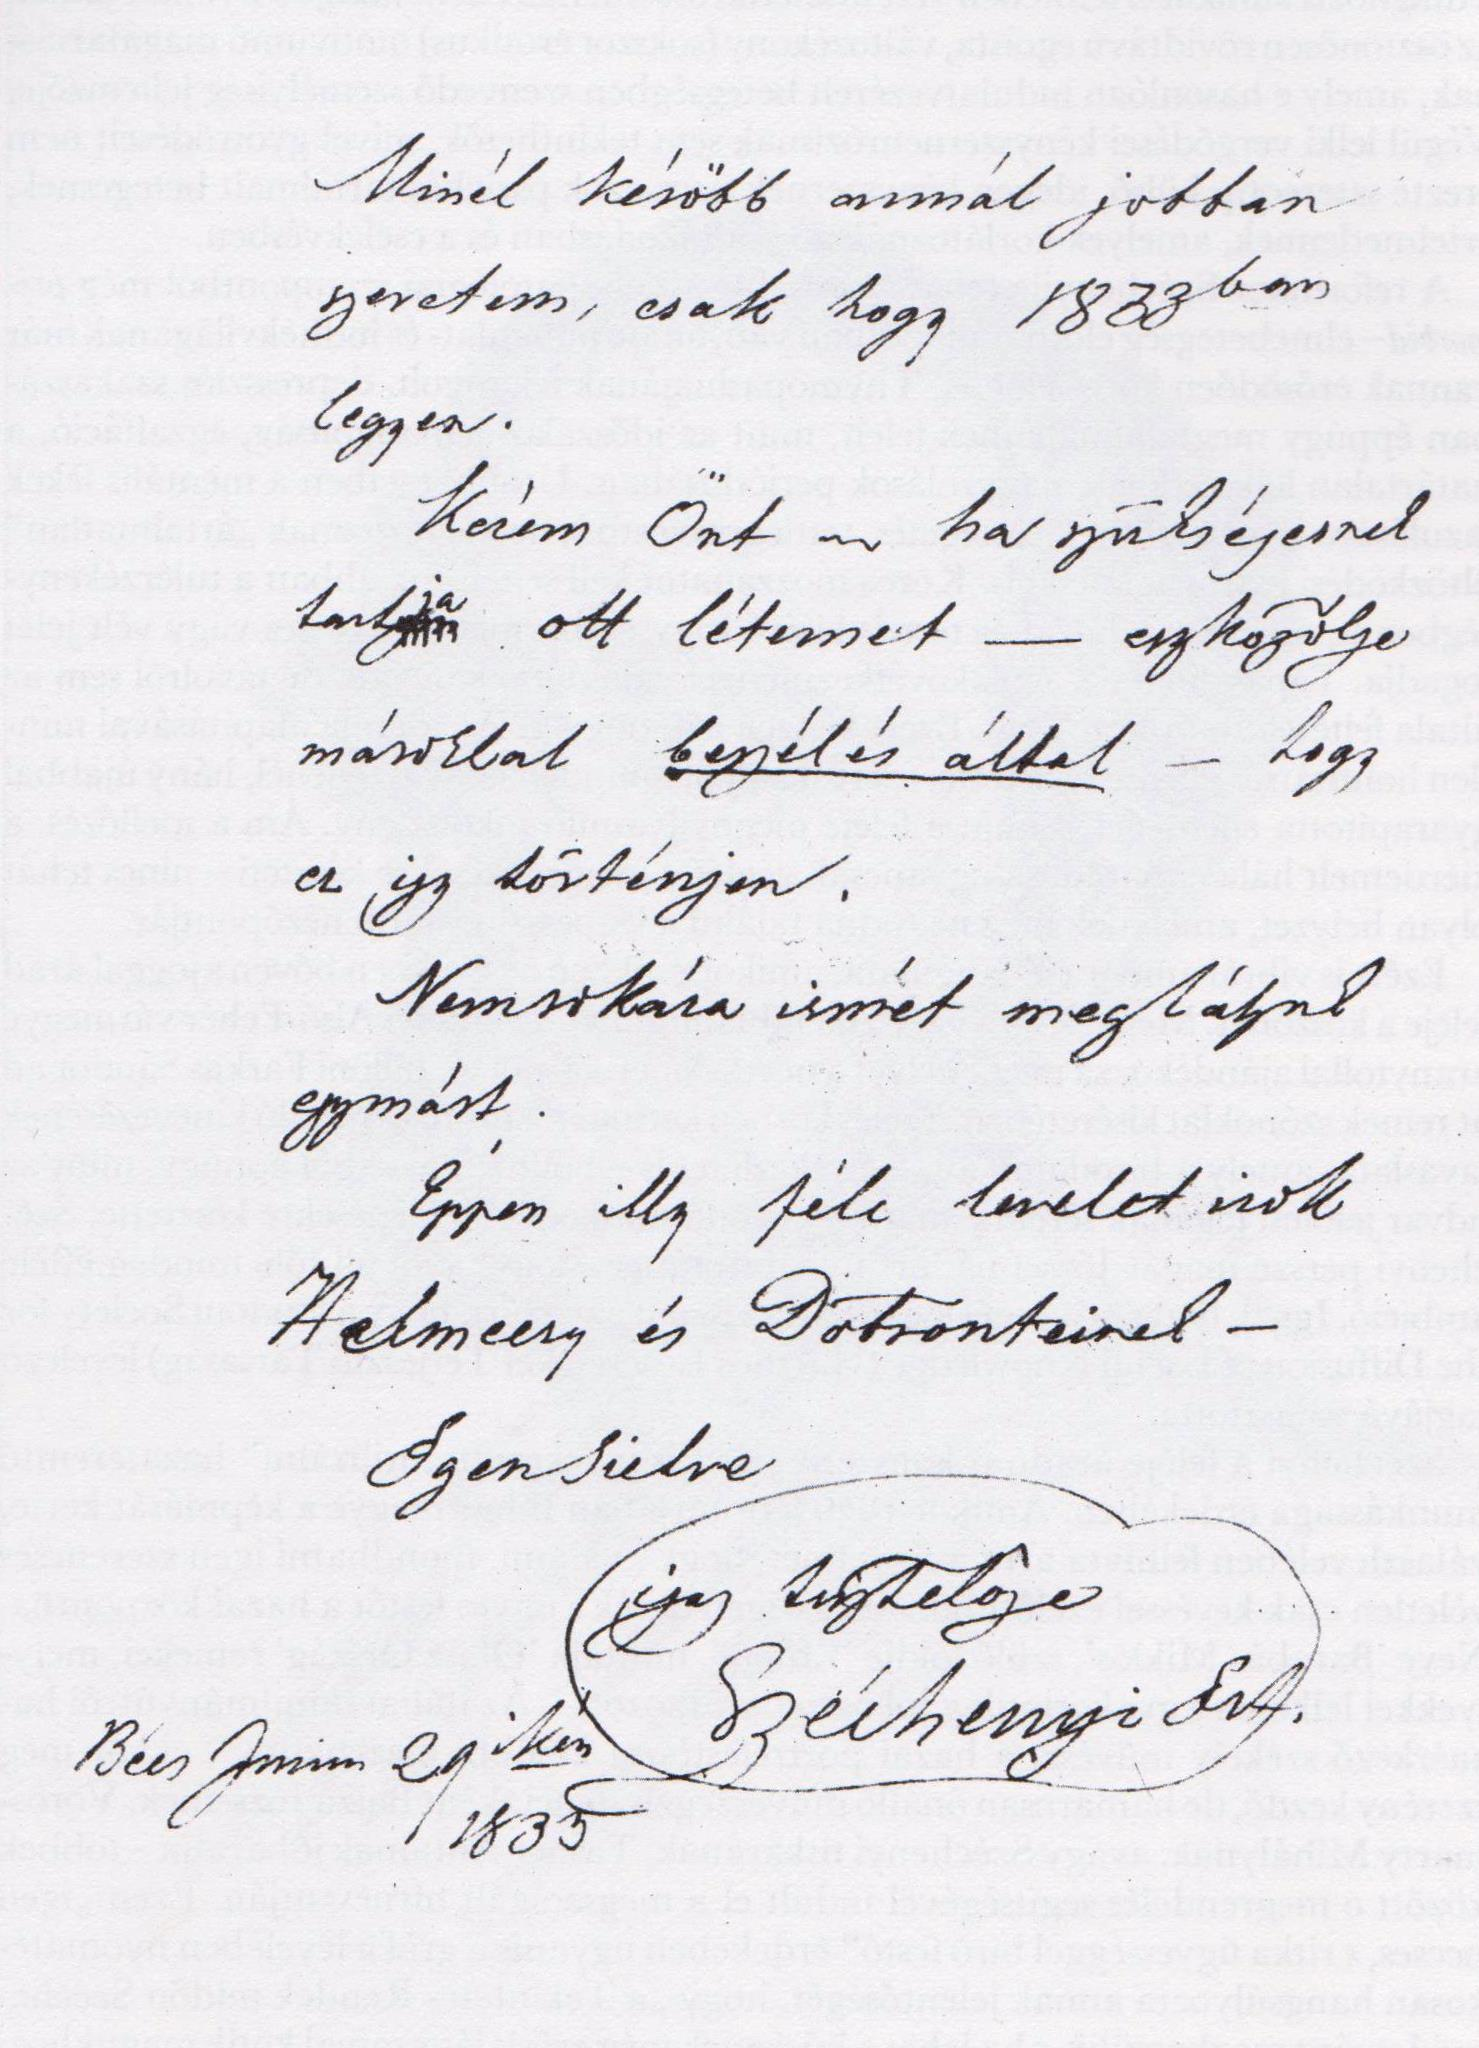 Minél később annál jobban
szeretem, csak hogy 1833ban
legyen.
Kérem Önt – ha szükségesnek
tartja ott létemet — eszközölje
másokkal beszélés által – hogy
ez így történjen.
Nemsokára ismét meglátjuk
egymást.
Éppen illy féle levelet irok
Helmeczy és Döbrenteinek –
Egensietve
igaz tisztelője
Széchenyi Ist.
Bécs Junius 29ikén
1833